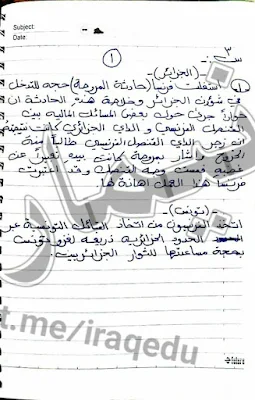 Subject:
Date:
١
س٣
(الجزائر)-
استغلت فرنسا (حادثة المروحة) حجه للتدخل
في شؤون الجزائر وخلاصة هذه الحادثة ان
حواراً جرى حول بعض المسائل الماليه بين
القنصل الفرنسي و الداي الجزائري كانت نتيجته
ان زجر الداي القنصل الفرنسي طالباً منه
الخروج واشار بمروحة كانت بيده تعبيراً عن
غضبه فمست وجه القنصل وقد اعتبرت
فرنسا هذا العمل اهانة لها.
(تونس)-
اتخذ الفرنسيون من اتخاذ القبائل التونسية عبر
الحدود الجزائريه ذريعه لغزو تونس
بحجة مساعدتها للثوار الجزائريين.
t.me/iraqedu